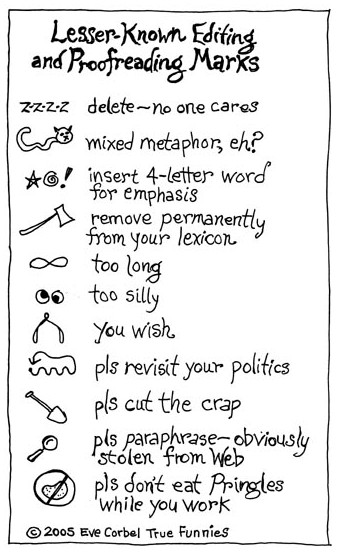 Lesser-Known Editing
and Proofreading Marks
z-z-z-z delete~no one cares
mixed metaphor, eh?
*@! insert 4-letter word
for emphasis
remove permanently
from your lexicon
∞ too long
too silly
you wish
pls revisit your politics
pls cut the crap
pls paraphrase—obviously
stolen from Web
pls don't eat Pringles
while you work
© 2005 Eve Corbel True Funnies